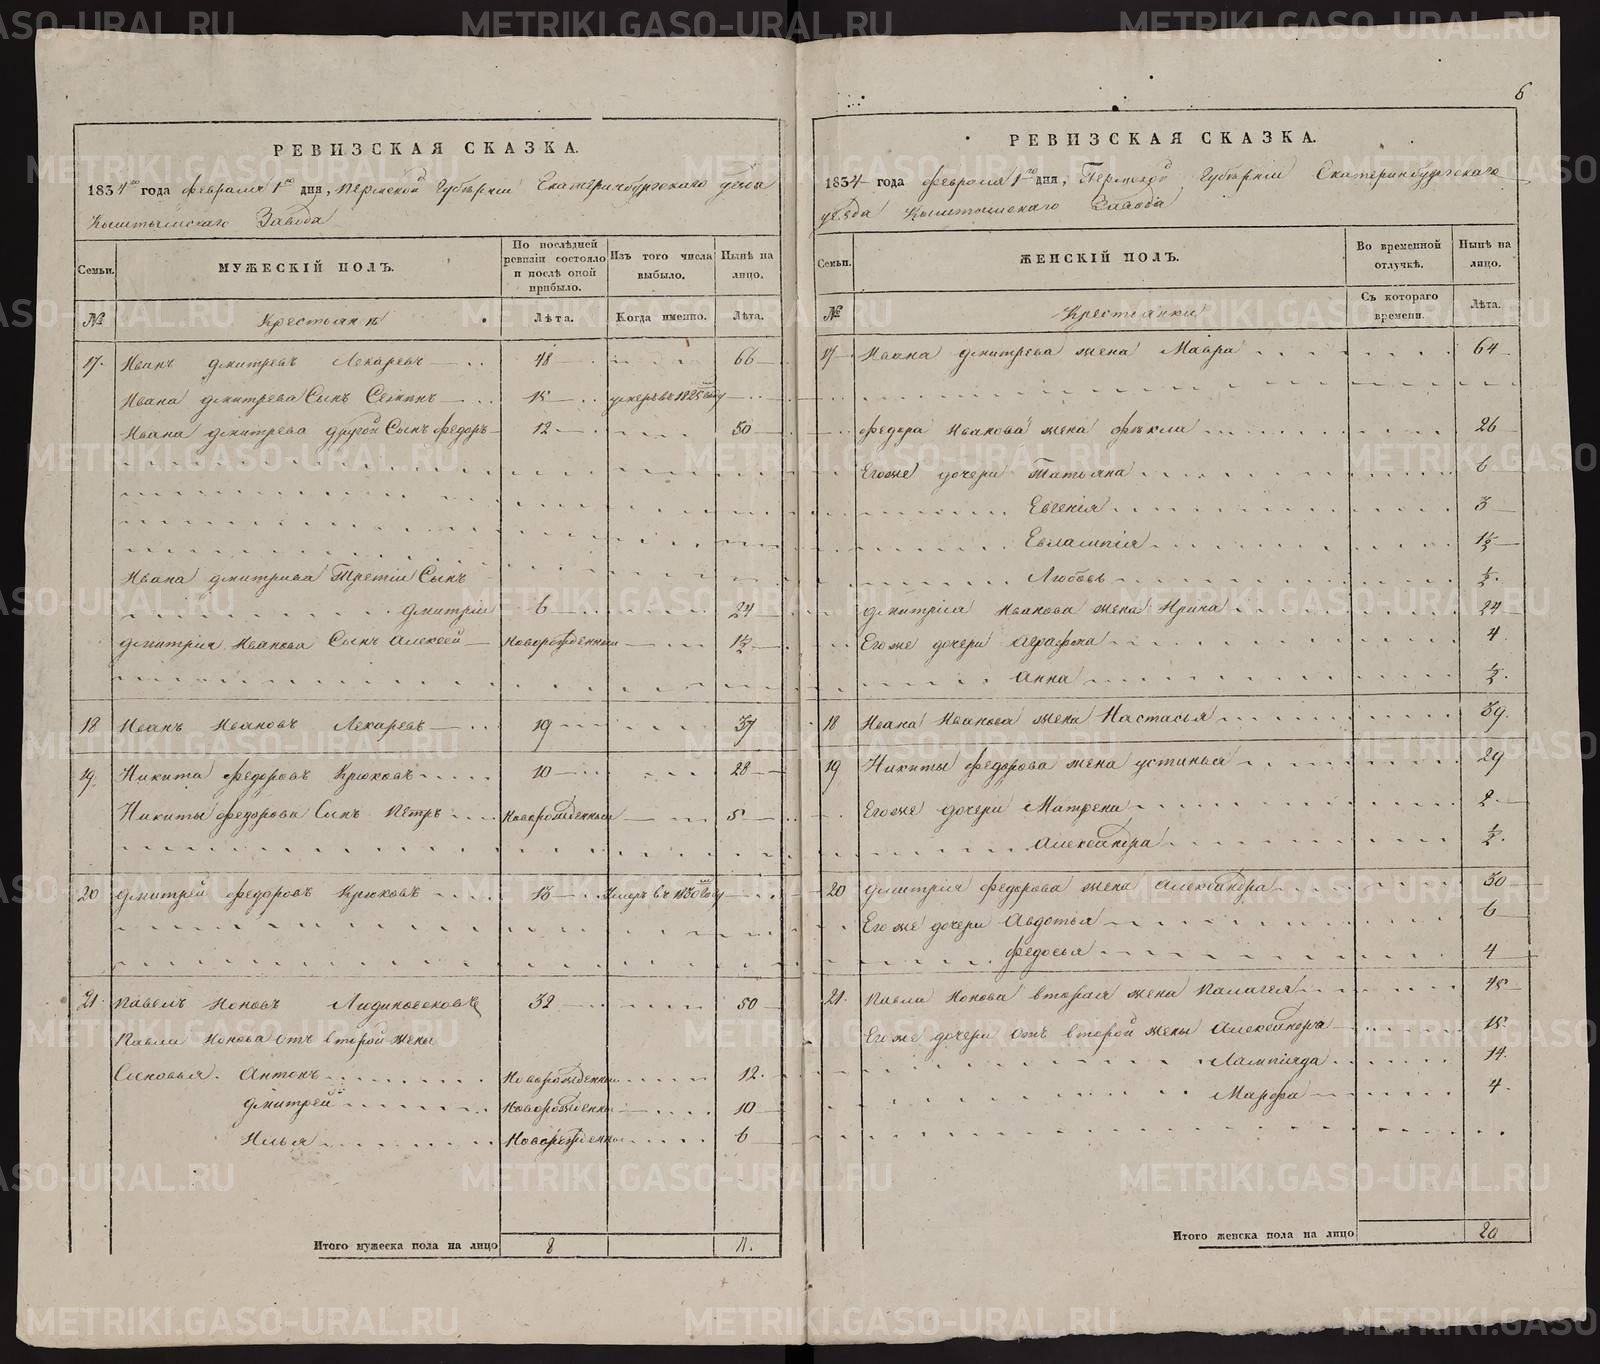 6
РЕВИЗСКАЯ СКАЗКА.
1834го года февраля 1го дня, Пермской Губернии Екатеринбургского уезда
Кыштымскаго Завода
Семьи.
МУЖЕСКІЙ ПОЛЪ.
По послѣдней ревизіи состояло и послѣ оной прибыло.
Изъ того числа выбыло.
Нынѣ на лицо.
№
Крестьянѣ
Лѣта.
Когда именно.
Лѣта.
17. Иванъ Дмитревъ Лекаревъ 48 66
Ивана Дмитрева Сынъ 15 умеръ въ 1825 году
Ивана Дмитрева другой Сынъ Федоръ 12 30
Ивана Дмитрива Третіи Сынъ
Дмитрiи 6 24
Дмитрія Иванова Сынъ Алексей Новорожденныи 1½
18 Иванъ Ивановъ Лекаревъ 19 37
19. Никита Федоровъ Крюковъ 10 28
Никиты Федорова Сынъ Петръ Новорожденныи 5
20 Дмитрей Федоровъ Крюковъ 13 Умеръ въ 1830 году
21. Павелъ Ионовъ 32 50
Павла Ионова отъ второй жены
Сыновья. Антонъ Новорожденны 12.
Дмитрей Новорожденны 10
Илья Новорожденны 6
Итого мужеска пола на лицо 8 11.
РЕВИЗСКАЯ СКАЗКА.
1834 года февраля 1го дня, Пермской Губерніи Екатеринбургскаго
уѣзда Кыштымскаго Завода
Семьи.
ЖЕНСКІЙ ПОЛЪ.
Во временной отлучкѣ.
Нынѣ на лицо.
№
Крестьянки
Съ котораго времени.
Лѣта.
17 Ивана Дмитрева жена Мавра 64
Федора Иванова жена Фекла 26
Егоже дочери Татьяна 6
Евгенія 3
Евлампія 1½
Любовь ½.
Дмитрія Иванова жена Ирина 24
Егоже дочери Аграфена 4
Анна ½.
18 Ивана Иванова жена Настасья 39.
19 Никиты Федорова жена Устинья 29
Егоже дочери Матрена 2
Александра ½.
20 Дмитрія Федорова жена Александра 30
Егоже дочери Авдотья 6
Федосья 4
21. Павла Ионова вторая жена Палагея 45
Егоже дочери отъ второй жены Александра 15.
14.
Марфа 4.
Итого женска пола на лицо 20
METRIKI.GASO-URAL.RU